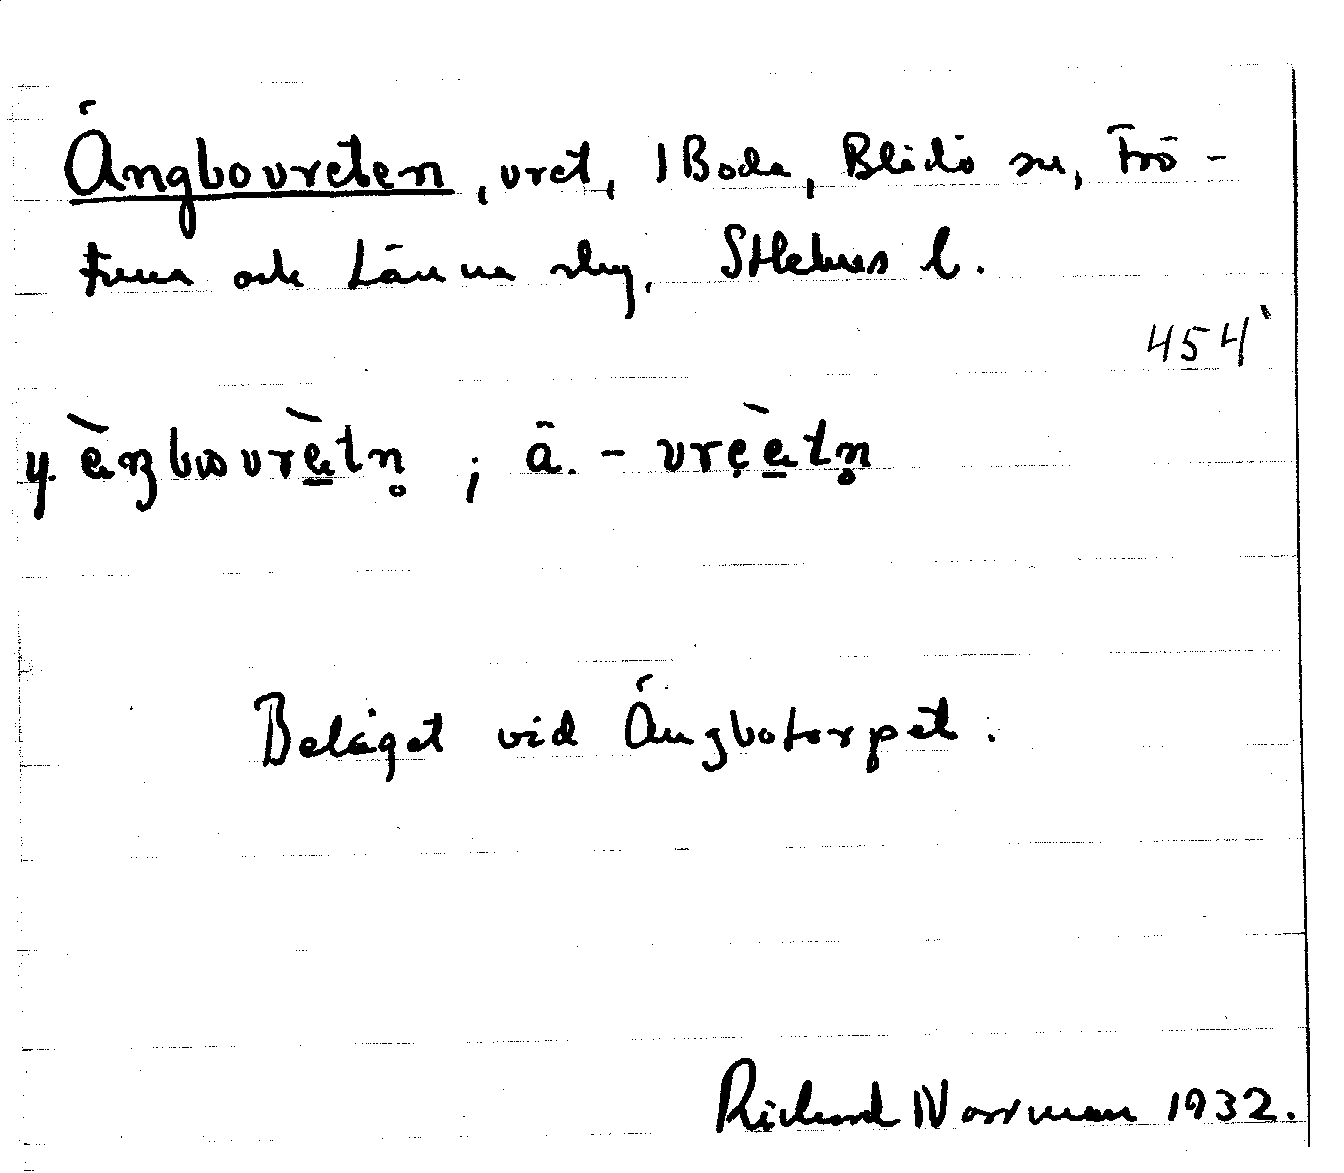 Ängbovreten, vret, 1 Boda, Blidö sn, Frö-
tuna och Länna slg, Sthlms l.
454
y. ὲŋbωvrètn̥ ; ä. - vrẹètn̥
Beläget vid Ängbotorpet.
Richard Norrman 1932.